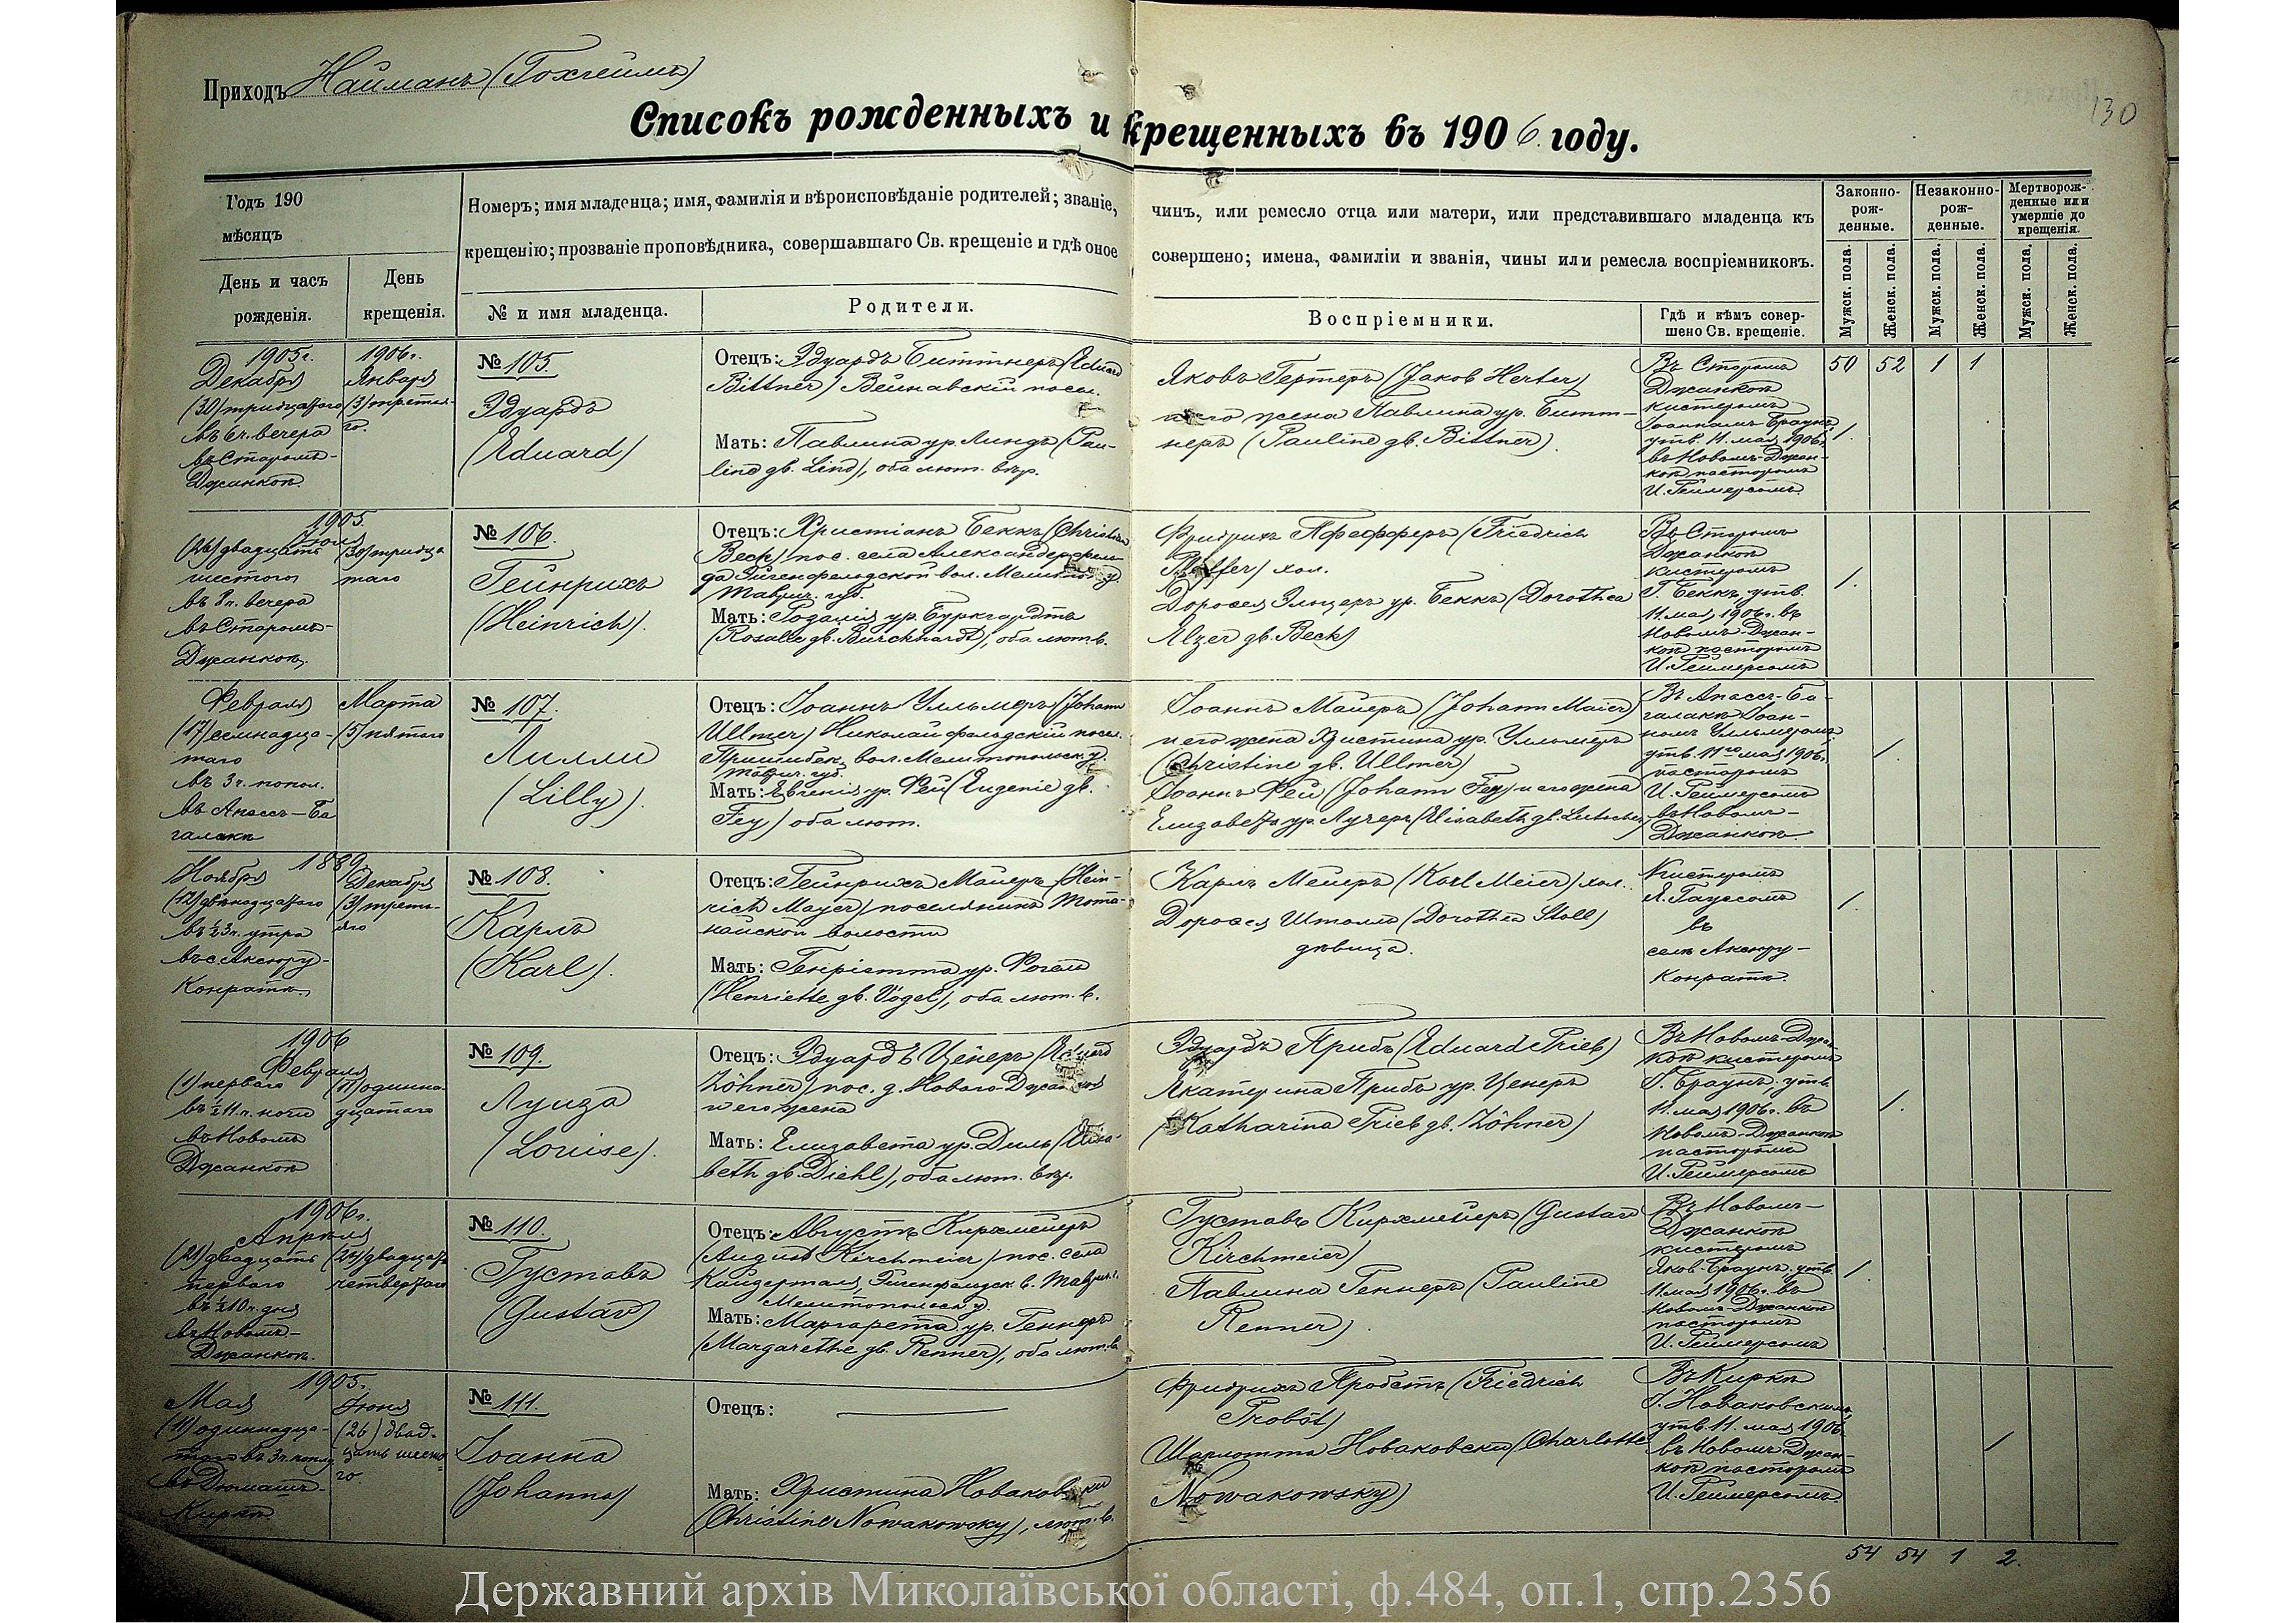 Приходъ Найманъ (Гохгеймъ)
130
Списокъ рожденныхъ и крещенныхъ въ 1906. году.
Годъ 190
мѣсяцъ
День и часъ
рожденія.
День
крещенія.
Номеръ; имя младенца; имя, фамилія и вѣроисповѣданіе родителей; званіе,
крещенію; прозваніе проповѣдника, совершавшаго Св. крещеніе и гдѣ оное
№ и имя младенца.
Родители.
чинъ, или ремесло отца или матери, или представившаго младенца къ
совершено; имена, фамиліи и званія, чины или ремесла воспріемниковъ.
Воспріемники.
Гдѣ и кѣмъ совер-
шено Св. крещеніе.
Законно-
рож-
денные.
Незаконно-
рож-
денные.
Мертворож-
денные или
умершіе до
крещенія.
Мужск. пола.
Женск. пола.
Мужск. пола.
Женск. пола.
Мужск. пола.
Женск. пола.
1905г.
Декабря
(30) тридцатаго
въ 6 ч. вечера
въ Старомъ-
Джанкоѣ.
1906г.
Января
(3) третья-
го.
№ 105.
Эдуардъ
(Eduard)
Отецъ: Эдуардъ Биттнеръ (Eduard
Bittner) Вейнавскій посел.
Мать: Павлина ур. Линдъ (Pau-
line gb. Lind), оба лют. вѣр.
Яковъ Гертеръ (Jakob Herter)
и его жена Павлина ур. Битт-
неръ (Pauline gb. Bittner).
Въ Старомъ
Джанкоѣ
кистеромъ
Іоанномъ Браунъ,
утв. 11. мая 1906г.
въ Новомъ-Джан-
коѣ пасторомъ
И. Геймерсомъ.
50 52 1 1
1.
1905.
Іюля
(26) двадцать
шестого
въ 8 ч. вечера
въ Старомъ-
Джанкоѣ.
(30) тридца
таго
№ 106.
Гейнрихъ
(Heinrich).
Отецъ: Христіанъ Беккъ (Christian
Beck) пос. села Александерфель-
да Эйгенфельдской вол. Мелитоп. у.
Таврич. губ.
Мать: Розалія ур. Буркгардтъ
(Rosalie gb. Burckhardt), оба лют. в.
Фридрихъ Пфефферъ (Friedrich
Pfeffer) хол.
Доротея Эльцеръ ур. Беккъ (Dorothea
Elzer gb. Beck)
Въ Старомъ
Джанкоѣ
кистеромъ
Г. Беккъ, утв.
11. мая 1906г. въ
Новомъ-Джан-
коѣ пасторомъ
И. Геймерсомъ
1.
Февраля
(17) семнадца-
таго
въ 3 ч. попол.
въ Апассъ-Ба
галакъ
Марта
(5) пятаго
№ 107.
Лилли
(Lilly).
Отецъ: Іоаннъ Улльмеръ (Johann
Ullmer) Николайфельдскій посел.
Пришибск. вол. Мелитопольск. у.
Таврич. губ.
Мать: Евгенія ур. Фей (Eugenie gb.
Fey) оба лют.
Іоаннъ Майеръ (Johann Maier)
и его жена Христина ур. Улльмеръ
(Christine gb. Ullmer)
Іоаннъ Фей (Johann Fey) и его жена
Елизавета ур. Лучеръ (Elisabeth gb. Lutscher)
Въ Апассъ-Ба-
галакъ Іоан-
номъ Улльмеромъ;
утв. 11го мая 1906г.
пасторомъ
И. Геймерсомъ
въ Новомъ-
Джанкоѣ.
1.
1889
Ноября
(12) двѣнадцатаго
въ ½3 ч. утра
въ с. Аксюру-
Конратѣ.
Декабря
(3) треть-
яго
№ 108.
Карлъ
(Karl).
Отецъ: Гейнрихъ Майеръ (Hein-
rich Mayer) поселянинъ Тота-
найской волости
Мать: Генріетта ур. Фогель
(Henriette gb. Vogel), оба лют. в.
Карлъ Мейеръ (Karl Meier) хол.
Доротея Штолль (Dorothea Stoll)
дѣвица.
Кистеромъ
Я. Гауссомъ
въ
селѣ Аксюру-
Конратѣ.
1.
1906
Февраля
(1) перваго
въ ½11 ч. ночи
въ Новомъ
Джанкоѣ
(11) одинна-
дцатаго
№ 109.
Луиза
(Louise).
Отецъ: Эдуардъ Ценеръ (Eduard
Zöhner) пос. д. Новаго-Джанкоя
и его жена
Мать: Елизавета ур. Диль (Elisa-
beth gb. Diehl), оба лют. вѣр.
Эдуардъ Прибъ (Eduard Prieb)
Екатерина Прибъ ур. Ценеръ
(Katharina Prieb gb. Zöhner)
Въ Новомъ-Джан-
коѣ кистеромъ
Г. Браунъ, утв.
11. мая 1906г. въ
Новомъ-Джанкоѣ
пасторомъ
И. Геймерсомъ
1.
1906г.
Апрѣля
(21) двадцать
перваго
въ ½10 ч. дня
въ Новомъ-
Джанкоѣ.
(24) двадцать
четвертаго
№ 110.
Густавъ
(Gustav)
Отецъ: Августъ Кирхмейеръ
(August Kirchmeier) пос. села
Кайзерталя, Эйгенфельдск. в. Таврич. г.
Мелитопольск. у.
Мать: Маргарета ур. Геннеръ
(Margarethe gb. Renner), оба лют. в.
Густавъ Кирхмейеръ (Gustav
Kirchmeier)
Павлина Геннеръ (Pauline
Renner).
Въ Новомъ-
Джанкоѣ
кистеромъ
Яков. Браунъ, утв.
11 мая 1906г. въ
Новомъ-Джанкоѣ
пасторомъ
И. Геймерсомъ
1.
1905.
Мая
(11) одиннадца-
таго въ 3 ч. попол.
въ Дюмашъ-
Киркѣ
Іюня
(26) двад-
цать шесто-
го.
№ 111.
Іоанна
(Johanna)
Отецъ:
Мать: Христина Новаковски
(Christine Nowakowsky), лют. в.
Фридрихъ Пробстъ (Friedrich
Probst)
Шарлотта Новаковски (Charlotte
Nowakowsky)
Въ Киркѣ
Г. Новаковскимъ,
утв. 11. мая 1906г.
въ Новомъ Джан-
коѣ пасторомъ
И. Геймерсомъ.
1
54 54 1 2.
Державний архів Миколаївської області, ф.484, оп.1, спр.2356